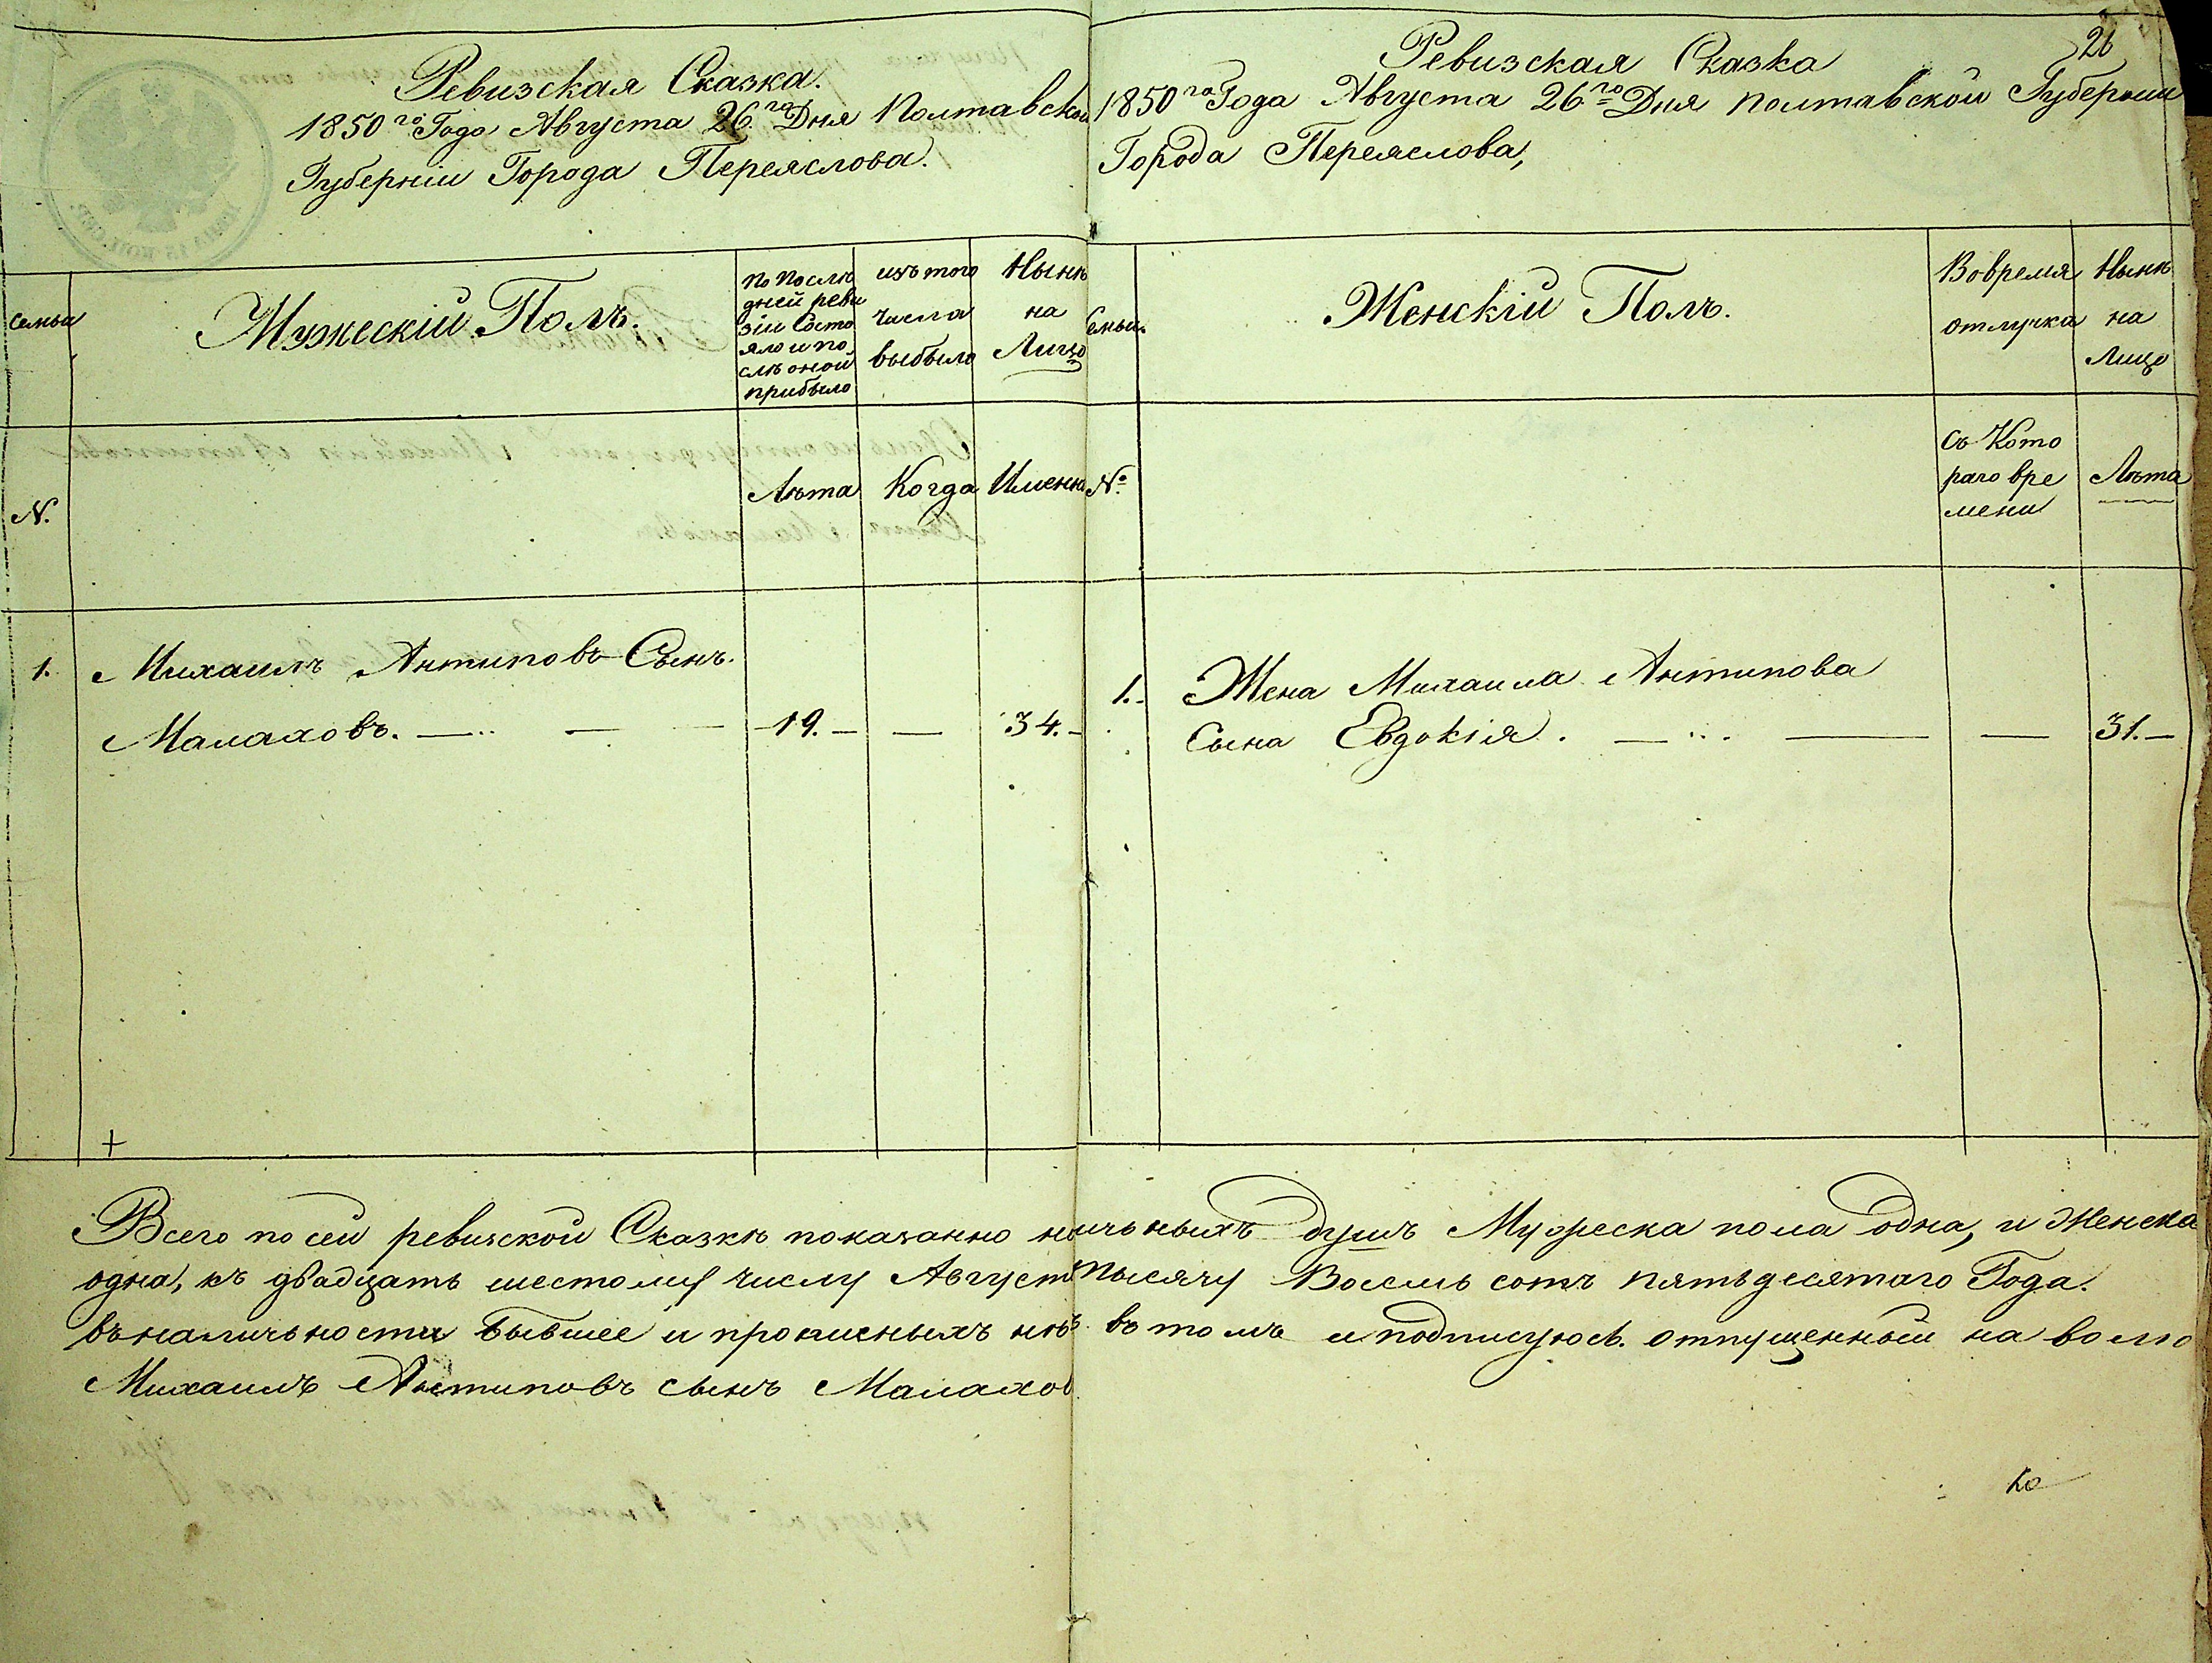 Ревизская Сказка.
1850го Года Августа 26го Дня Полтавской
Губерніи Города Переяслова.
семьи
Мужескій Полъ.
По послѣ
дней реви
зіи Состо
яло и по
слѣ оной
прибыло
изъ того
числа
выбыло
Нынѣ
на
Лицо
N.
Лѣта
Когда
Именно
1. Михаилъ Антиповъ Сынъ.
Малаховъ. — — — 19. — — 34. —
26
Ревизская Сказка
1850го Года Августа 26го Дня Полтавской Губерніи
Города Переяслова,
Семьи
Женскій Полъ.
Вовремя
отлучки
Нынѣ
на
Лицо
№
Съ Кото
раго вре
мени
Лѣта
1. Жена Михаила Антипова
Сына Евдокія. — — — 31. —
Всего по сей ревизской Сказкѣ показанно наличьныхъ душъ Мужеска пола одна, и Женска
одна, къ двадцать шестому числу Августа тысячу Восемь сотъ пятьдесятаго Года.
въ наличьности бывшее и прописныхъ нѣтъ въ томъ и подписуюсь. отпущенный на волю
Михаилъ Антиповъ сынъ Малахов